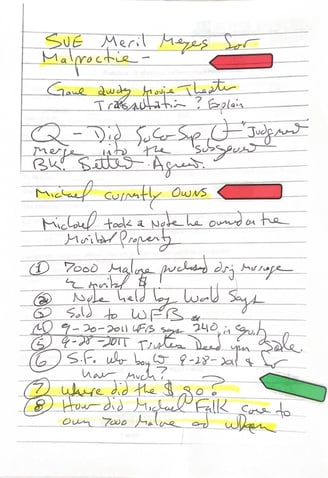 SUE Meril Meyes for
Malpractie -
Gave away Movie Theater
? Explain
Q - Did SuCoSup Ct "Judgmet
merge into the
BK. Agree.
Michael currently OWNS
Michael took a Note he owned on the
Marital Property
① 7000 Malove purchased drg marriage
w marital $
② Note held by World Savgs
③ Sold to WFB
④ 9-20-2011 WFB says 240, in equity
⑤ 9-28-2011 Trustees Deed upon Sale
⑥ S.F. who bought 9-28-2011 & for
how much?
⑦ Where did the $ go?
⑧ How did Michael Falk come to
own 7000 Malove and when